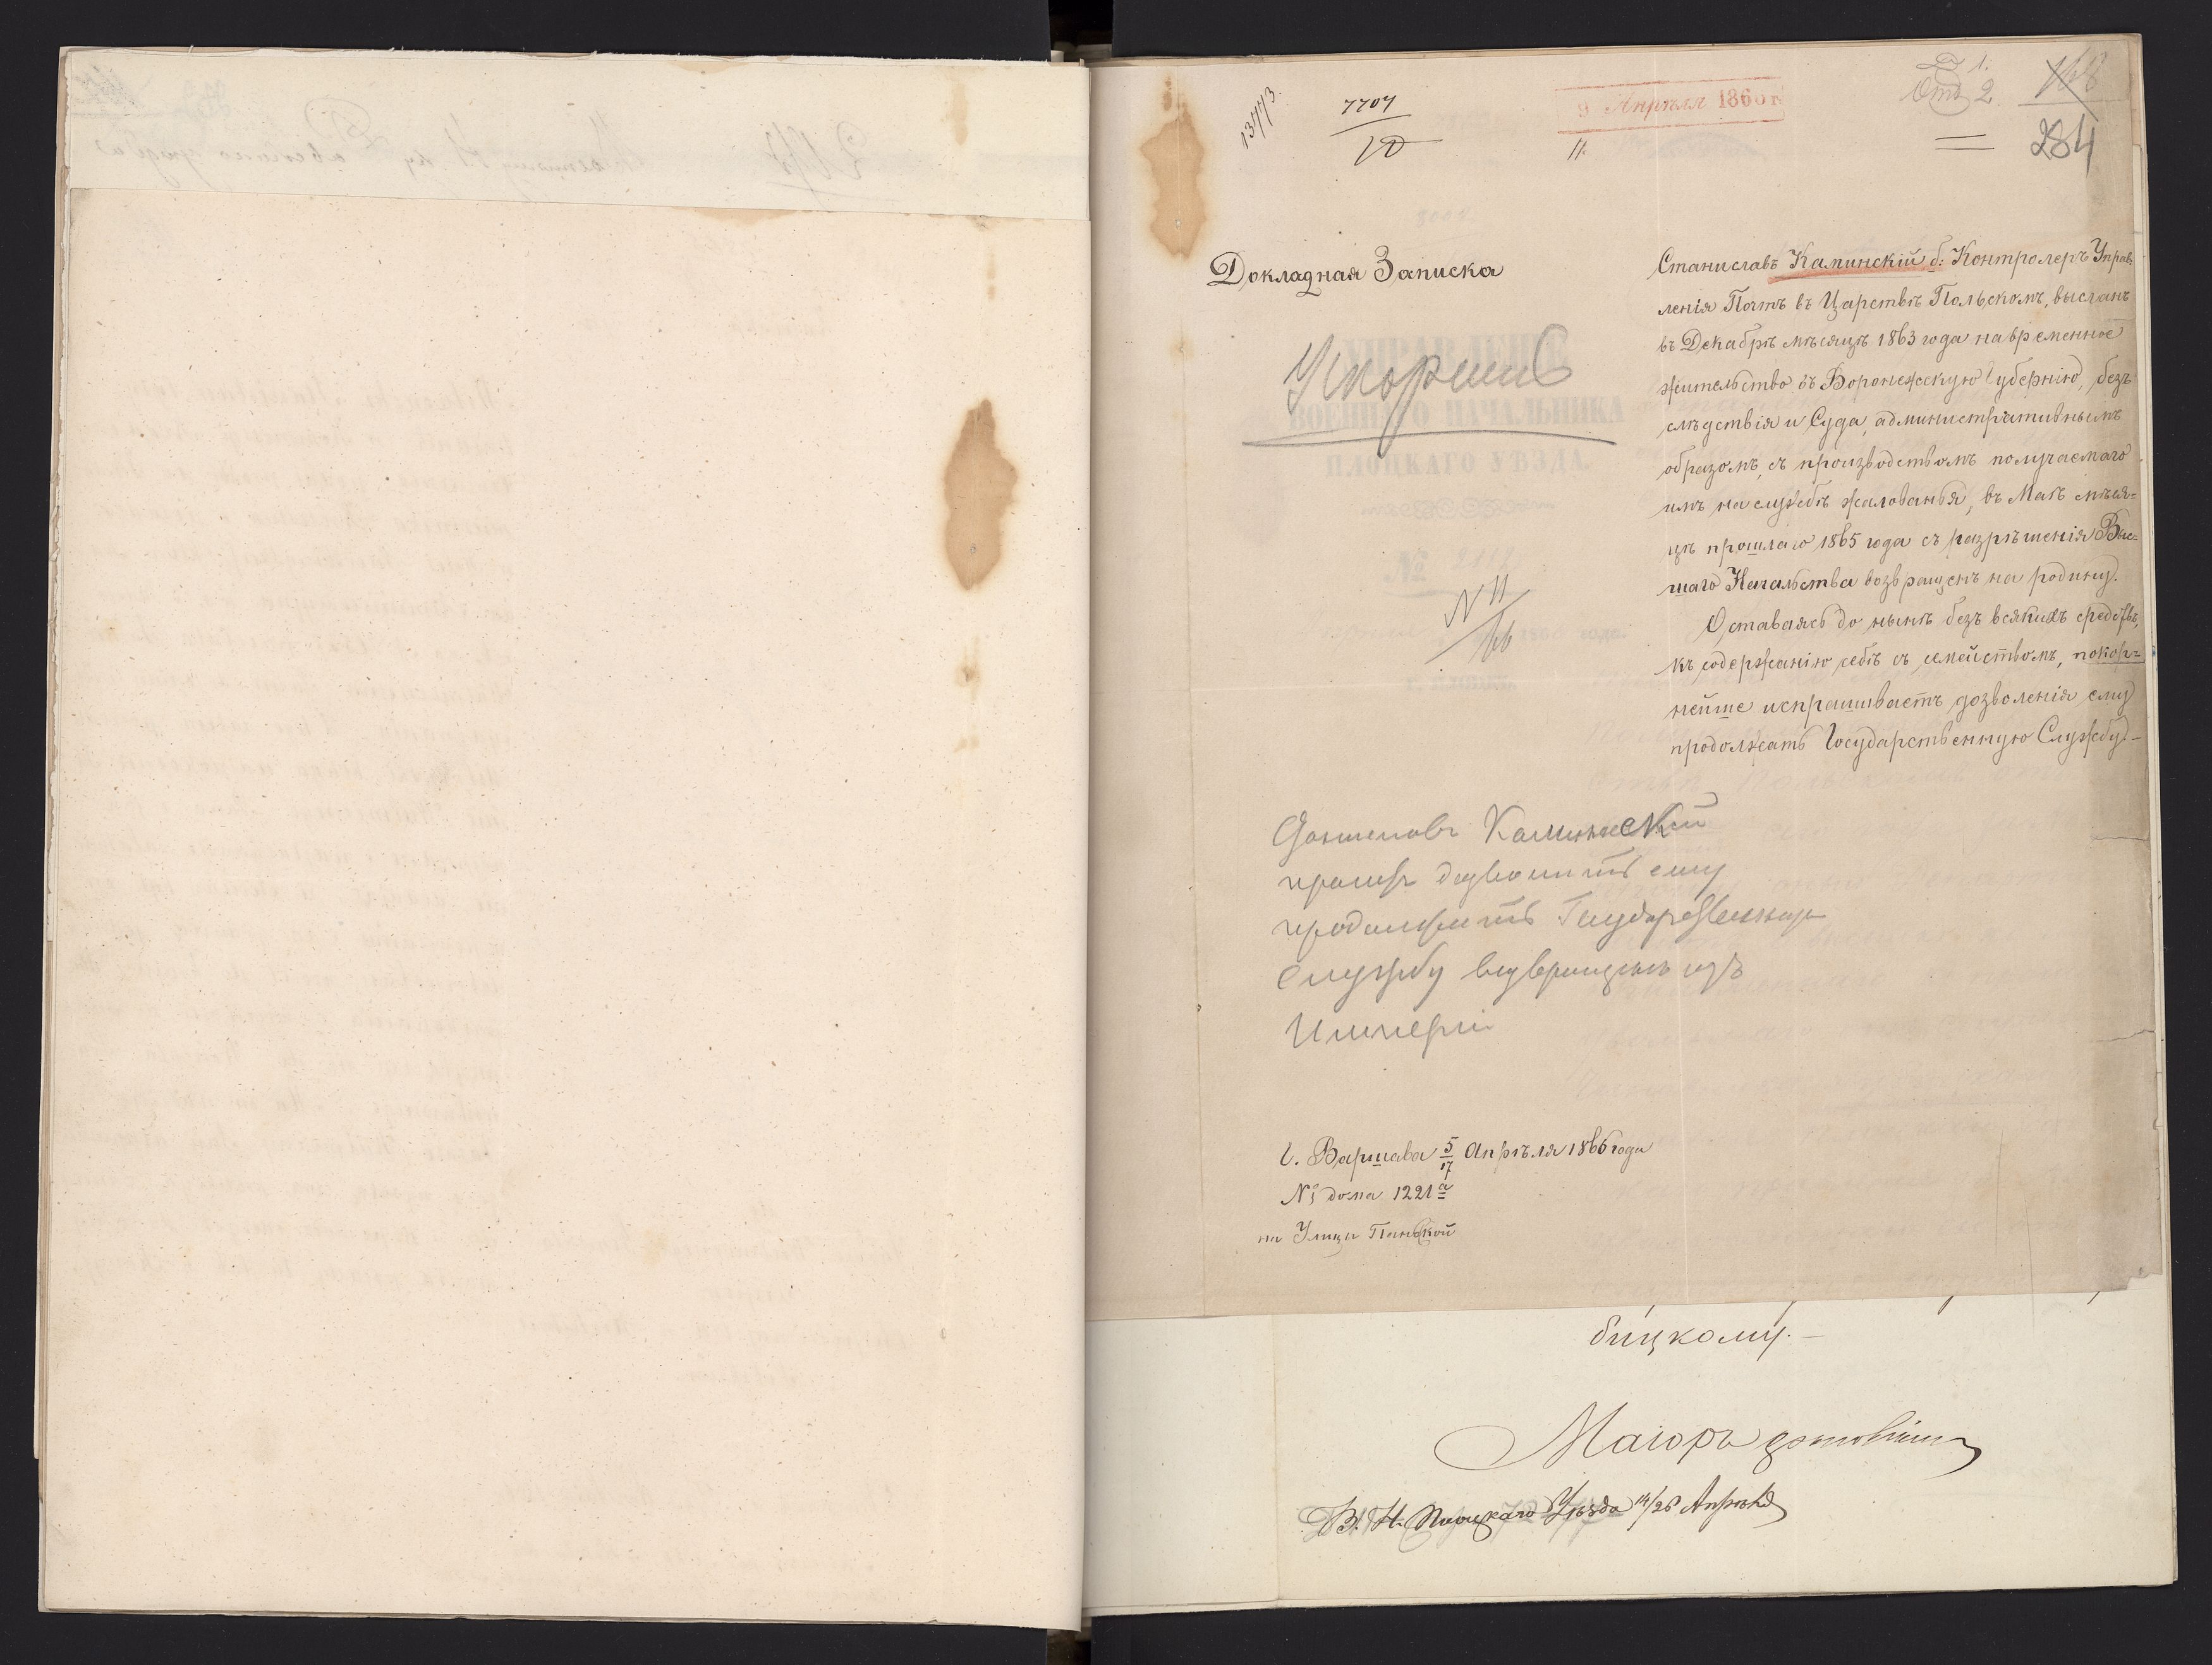 13773.
7707
10
9 Апрѣля 1866 г.
11.
Д 1.
Отд 2
168
284
Докладная Записка
Ускорить
УПРАВЛЕНІЕ
ВОЕННАГО НАЧАЛЬНИКА
ПЛОЦКАГО УѢЗДА.
№
N 11
66
Станиславъ Каминскій б: Контролеръ Управ-
ленія Почтъ въ Царствѣ Польскомъ, высланъ
въ Декабрѣ мѣсяцѣ 1863 года на временное
жительство въ Воронежскую Губернію, безъ
слѣдствія и Суда, административнымъ
образомъ, съ производствомъ получаемаго
имъ на службѣ жалованья, въ Маѣ мѣся=
цѣ прошлаго 1865 года съ разрѣшенія Выс=
шаго Начальства возвращенъ на родину.
Оставаясь до нынѣ безъ всякихъ средствъ,
къ содержанію себѣ съ семействомъ, покор=
нейше испрашиваетъ дозволенія ему
продолжать Государственную Службу.-
Станиславъ Каминский
проситъ дозволить ему
продолжать Государственную
службу возвращенъ изъ
Имперіи
Г. Варшава 5/17 Апрѣля 1866 года
№ дома 1221 а
на Улицы Паньской
бицкому.-
Маіоръ
В. Н. Плоцкаго Уѣзда 14/26 Апрѣля